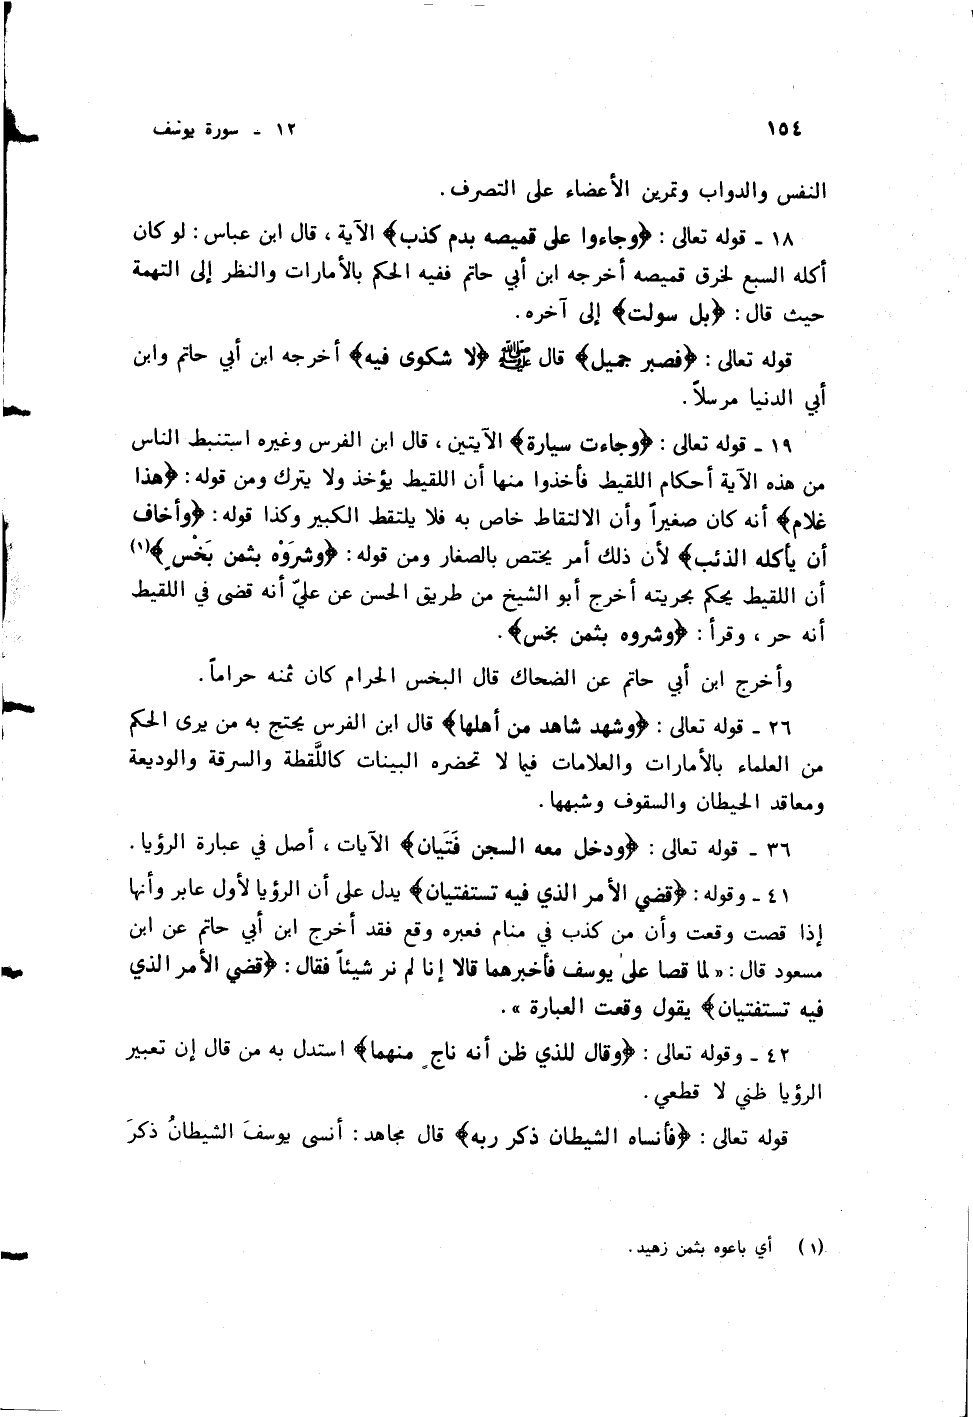 ١٥٤
١٢ - سورة يوسف
النفس والدواب وتمرين الأعضاء على التصرف.
١٨ - قوله تعالى: ﴿وجاءوا على قميصه بدم كذب﴾ الآية، قال ابن عباس: لو كان
أكله السبع لخرق قميصه أخرجه ابن أبي حاتم ففيه الحكم بالأمارات والنظر إلى التهمة
حيث قال: ﴿بل سولت﴾ إلى آخره.
قوله تعالى: ﴿فصبر جميل﴾ قال ﷺ ﴿لا شكوى فيه﴾ أخرجه ابن أبي حاتم وابن
أبي الدنيا مرسلاً.
١٩ - قوله تعالى: ﴿وجاءت سيارة﴾ الآيتين، قال ابن الفرس وغيره استنبط الناس
من هذه الآية أحكام اللقيط فأخذوا منها أن اللقيط يؤخذ ولا يترك ومن قوله: ﴿هذا
غلام﴾ أنه كان صغيراً وأن الالتقاط خاص به فلا يلتقط الكبير وكذا قوله: ﴿وأخاف
أن يأكله الذئب﴾ لأن ذلك أمر يختص بالصغار ومن قوله: ﴿وشرَوْه بثمن بَخْسٍ﴾(١)
أن اللقيط يحكم بحريته أخرج أبو الشيخ من طريق الحسن عن عليّ أنه قضى في اللقيط
أنه حر، وقرأ: ﴿وشروه بثمن بخس﴾.
وأخرج ابن أبي حاتم عن الضحاك قال البخس الحرام كان ثمنه حراماً.
٢٦ - قوله تعالى: ﴿وشهد شاهد من أهلها﴾ قال ابن الفرس يحتج به من يرى الحكم
من العلماء بالأمارات والعلامات فيما لا تحضره البينات كاللَّقطة والسرقة والوديعة
ومعاقد الحيطان والسقوف وشبهها.
٣٦ - قوله تعالى: ﴿ودخل معه السجن فَتَيان﴾ الآيات، أصل في عبارة الرؤيا.
٤١ - وقوله: ﴿قضي الأمر الذي فيه تستفتيان﴾ يدل على أن الرؤيا لأول عابر وأنها
إذا قصت وقعت وأن من كذب في منام فعبره وقع فقد أخرج ابن أبي حاتم عن ابن
مسعود قال: « لما قصا على يوسف فأخبرهما قالا إنا لم نر شيئاً فقال: ﴿قضي الأمر الذي
فيه تستفتيان﴾ يقول وقعت العبارة ».
٤٢ - وقوله تعالى: ﴿وقال للذي ظن أنه ناجٍ منهما﴾ استدل به من قال إن تعبير
الرؤيا ظني لا قطعي.
قوله تعالى: ﴿فأنساه الشيطان ذكر ربه﴾ قال مجاهد: أنسى يوسفَ الشيطانُ ذكرَ
(١) أي باعوه بثمن زهيد.